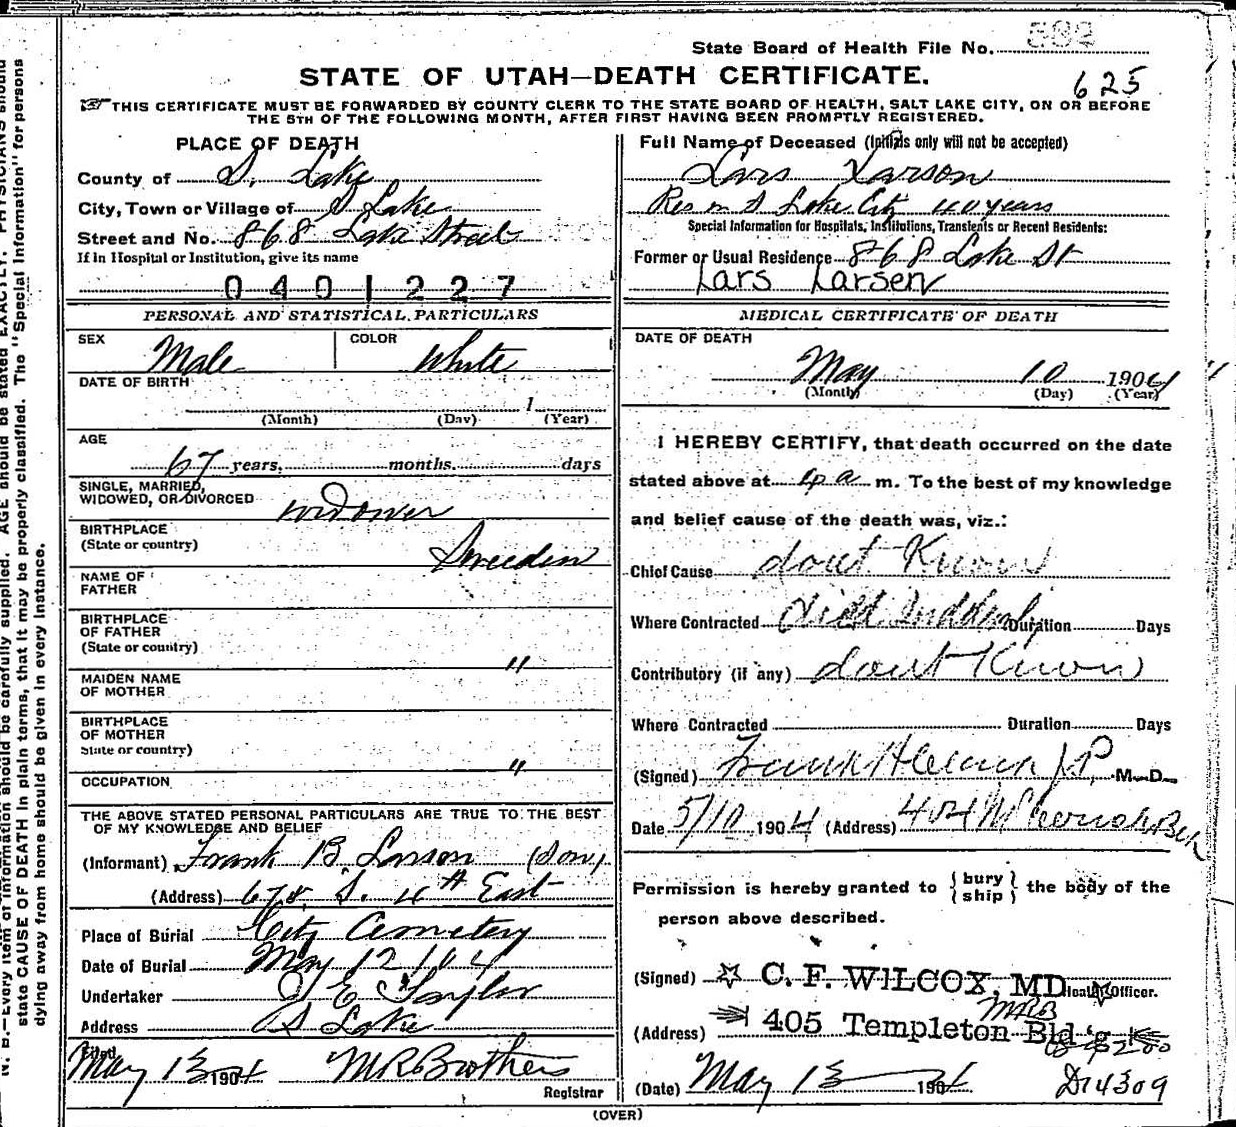 State Board of Health File No. 592
STATE OF UTAH—DEATH CERTIFICATE.
625
THIS CERTIFICATE MUST BE FORWARDED BY COUNTY CLERK TO THE STATE BOARD OF HEALTH, SALT LAKE CITY, ON OR BEFORE
THE 5TH OF THE FOLLOWING MONTH, AFTER FIRST HAVING BEEN PROMPTLY REGISTERED.
PLACE OF DEATH
County of S. Lake
City, Town or Village of S Lake
Street and No. 868 Lake Street
If in Hospital or Institution, give its name
0401227
PERSONAL AND STATISTICAL PARTICULARS
SEX Male COLOR White
DATE OF BIRTH
1
(Month) (Day) (Year)
AGE
67 years, months. days
SINGLE, MARRIED,
WIDOWED, OR DIVORCED widower
BIRTHPLACE
(State or country) Sweeden
NAME OF
FATHER
BIRTHPLACE
OF FATHER
(State or country) "
MAIDEN NAME
OF MOTHER
BIRTHPLACE
OF MOTHER
State or country) "
OCCUPATION
THE ABOVE STATED PERSONAL PARTICULARS ARE TRUE TO THE BEST
OF MY KNOWLEDGE AND BELIEF
(Informant) Frank B. Larson (Son)
(Address) 678. S. 4th East
Place of Burial City Cemetery
Date of Burial May 12 104
Undertaker S E Taylor
Address S Lake
Filed
May 13 1904 MRBrothers
Registrar
Full Name of Deceased (Initials only will not be accepted)
Lars Larson
Res in S Lake City 40 years
Special Information for Hospitals, Institutions, Transients or Recent Residents:
Former or Usual Residence 868 Lake St
Lars Larsen
MEDICAL CERTIFICATE OF DEATH
DATE OF DEATH
May 10 1904
(Month) (Day) (Year)
I HEREBY CERTIFY, that death occurred on the date
stated above at 4 a m. To the best of my knowledge
and belief cause of the death was, viz.:
Chief Cause dont Know
Where Contracted died Suddenly Duration Days
Contributory (if any) dont Know
Where Contracted Duration Days
(Signed) Frank J.P. M. D.
Date 5/10 1904 (Address) 404
Permission is hereby granted to { bury } the body of the
{ ship }
person above described.
(Signed) C. F. WILCOX, MD Health Officer.
MRB
(Address) 405 Templeton Bld'g
(Date) May 13 1904 D14309
(OVER)
N. B.—Every item of information should be carefully supplied. AGE should be stated EXACTLY. PHYSICIANS should
state CAUSE OF DEATH in plain terms, that it may be properly classified. The "Special Information" for persons
dying away from home should be given in every instance.